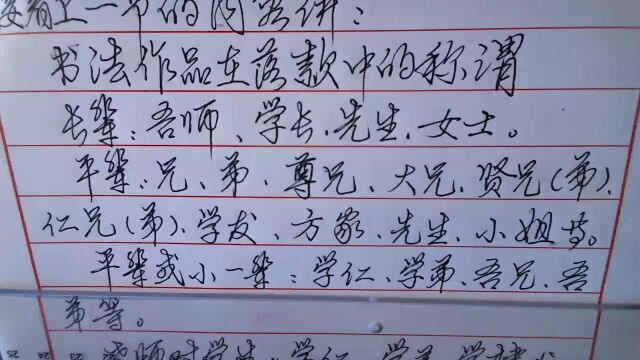 接着上一节的内容讲：
书法作品在落款中的称谓
长辈：吾师、学长、先生、女士。
平辈：兄、弟、尊兄、大兄、贤兄（弟）、
仁兄（弟）、学友、方家、先生、小姐等。
平辈或小一辈：学仁、学弟、吾兄、吾
弟等。
老师对学生：学仁、学弟、学棣